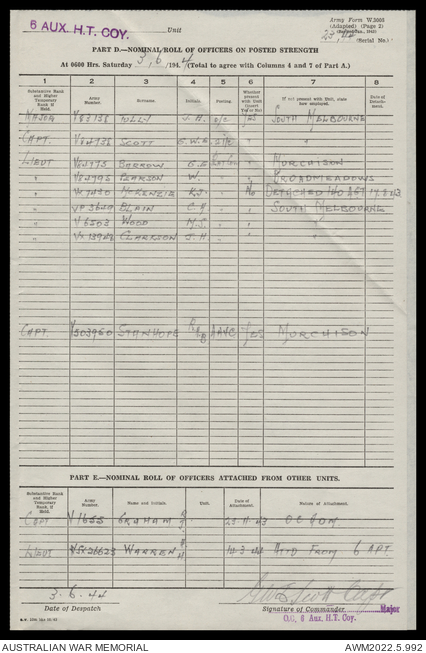 6 AUX. H.T. COY. Unit
Army Form W.3008
(Adapted) (Page 2)
23/44
(Serial No.)
PART D.—NOMINAL ROLL OF OFFICERS ON POSTED STRENGTH
At 0600 Hrs. Saturday 3/6/1944 (Total to agree with Columns 4 and 7 of Part A.)
1 2 3 4 5 6 7 8
Substantive Rank and Higher Temporary Rank if Held. Army Number. Surname. Initials. Posting. Whether present with Unit (Insert Yes or No) If not present with Unit, state how employed. Date of Detachment.
MAJOR O/C YES SOUTH MELBOURNE
CAPT. SCOTT G.W.E. 2 I/C "
LIEUT BARROW G.E " MURCHISON
" PEARSON W. " BROADMEADOWS
" McKENZIE K.J. No DETACHED
" BLAIN C.A. " SOUTH MELBOURNE
" V6502 WOOD M.S. " "
" CLARKSON J.H. " "
CAPT. V503960 STANHOPE YES MURCHISON
PART E.—NOMINAL ROLL OF OFFICERS ATTACHED FROM OTHER UNITS.
Substantive Rank and Higher Temporary Rank if Held. Army Number. Name and Initials. Unit. Date of Attachment. Nature of Attachment.
CAPT V1655 GRAHAM 23-11-43 O.C ADM.
LIEUT WARREN 14-3-44 ATTD FROM 6 APT.
3-6-44
Date of Despatch
Scott Capt
Signature of Commander Major
O/C, 6 Aux. H.T. Coy.
AUSTRALIAN WAR MEMORIAL
AWM2022.5.992